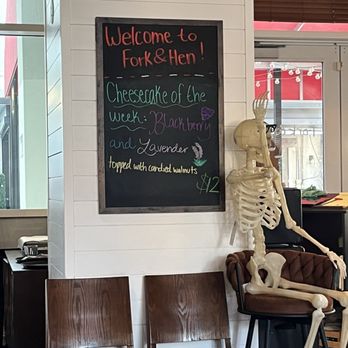 Welcome to
Fork & Hen!
Cheesecake of the
week: Blackberry
and Lavender
topped with candied walnuts
$12